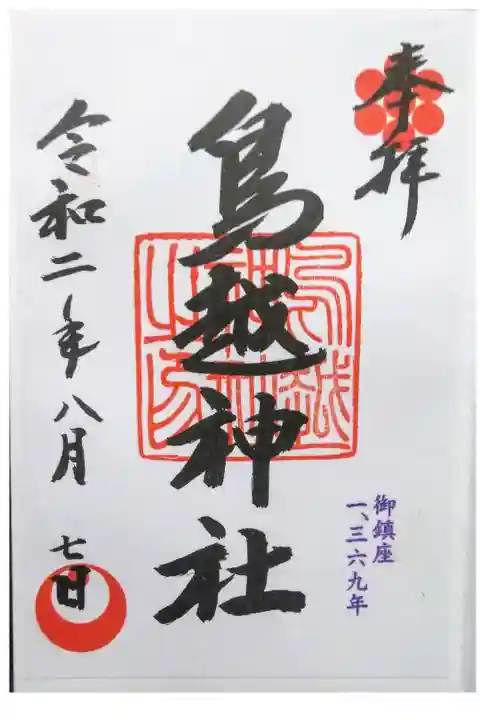 奉拝
鳥越神社
御鎮座
一、三六九年
令和二年八月七日